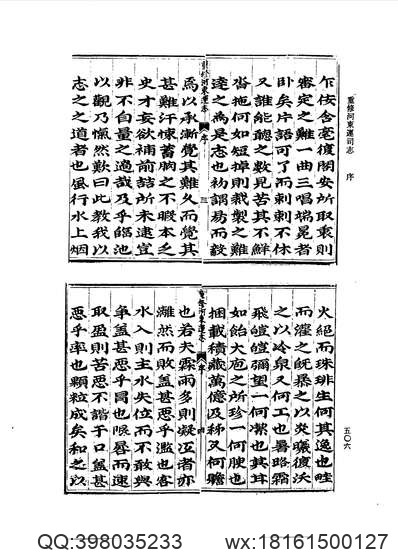 重修河東運司志　序
乍佞含毫復閣安所取衷則
審定之難一曲三唱端晃者
卧矣片語可了而刺刺不休
又誰能聽之數見苦其不鮮
沓拖何如短掉則裁製之難
逵之為是志也初謂易而殺
重修河東運志　序　三
焉以承漸覺其難久而覺其
甚難汗悚蓄胸之不暇本乏
史才妄欲補前喆所未逮豈
非不自量之過哉及乎臨池
以觀乃愾然歎曰此教我以
志之之道者也風行水上烟
火絕而珠琲生何其逸也畦
而灌之既暴之以炎曦復沃
之以冷泉又何工也暑路霜
飛皚皚彌望一何潔也其耳
如飴大庖之所珍一何腴也
捆載積藏萬億及秭又何贍
重修河東運志　序　四
也若夫霖雨多則凝沍者亦
灕然而敗蓋甚惡乎濫也客
水入則主水失位而不敢與
爭蓋甚惡乎冒也限晷而速
取盈則苦惡不諧于口蓋甚
惡乎率也顆粒成矣和之以
五〇六
QQ:398035233
wx:18161500127